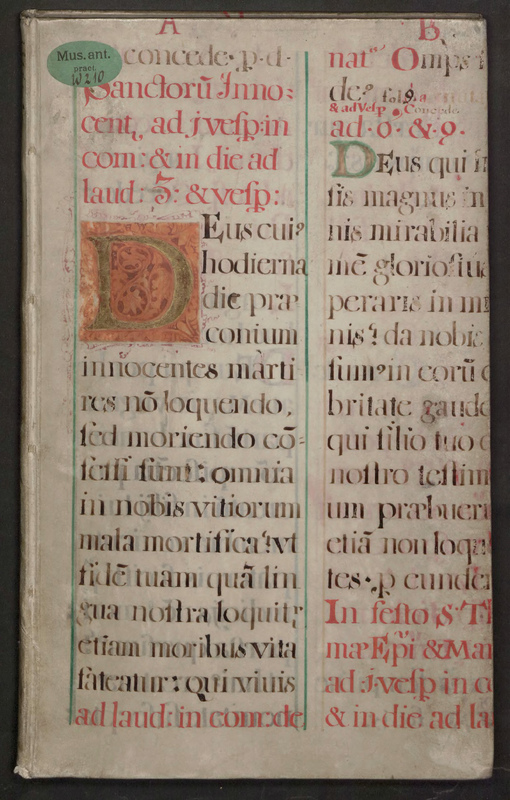 A
B
Mus. ant.
pract.
W 210
concede · p · d ·
Sanctorū Inno:
cent, ad j vesp: in
com: & in die ad
laud: 3: & vesp:
Deus cui?
hodierna
die præ
conium
innocentes marti
res nō loquendo,
sed moriendo cō=
fessi sunt: omnia
in nobis vitiorum
mala mortifica: vt
fidē tuam quā lin
gua nostra loquit,
etiam moribus vita
fateatur: Qui viuis
ad laud: in com: de
nat Omps
de
& ad Vesp Concede
ad · o · & · 9 ·
Deus qui
sis magnus in
nis mirabilia
mē
peraris in
nis: da nobis
sum in eorū
britate
qui filio tuo
nostro
um
etiā non
tes · p
In festo S · T
mæ Epi & Mar
ad j · vesp in
& in die ad la